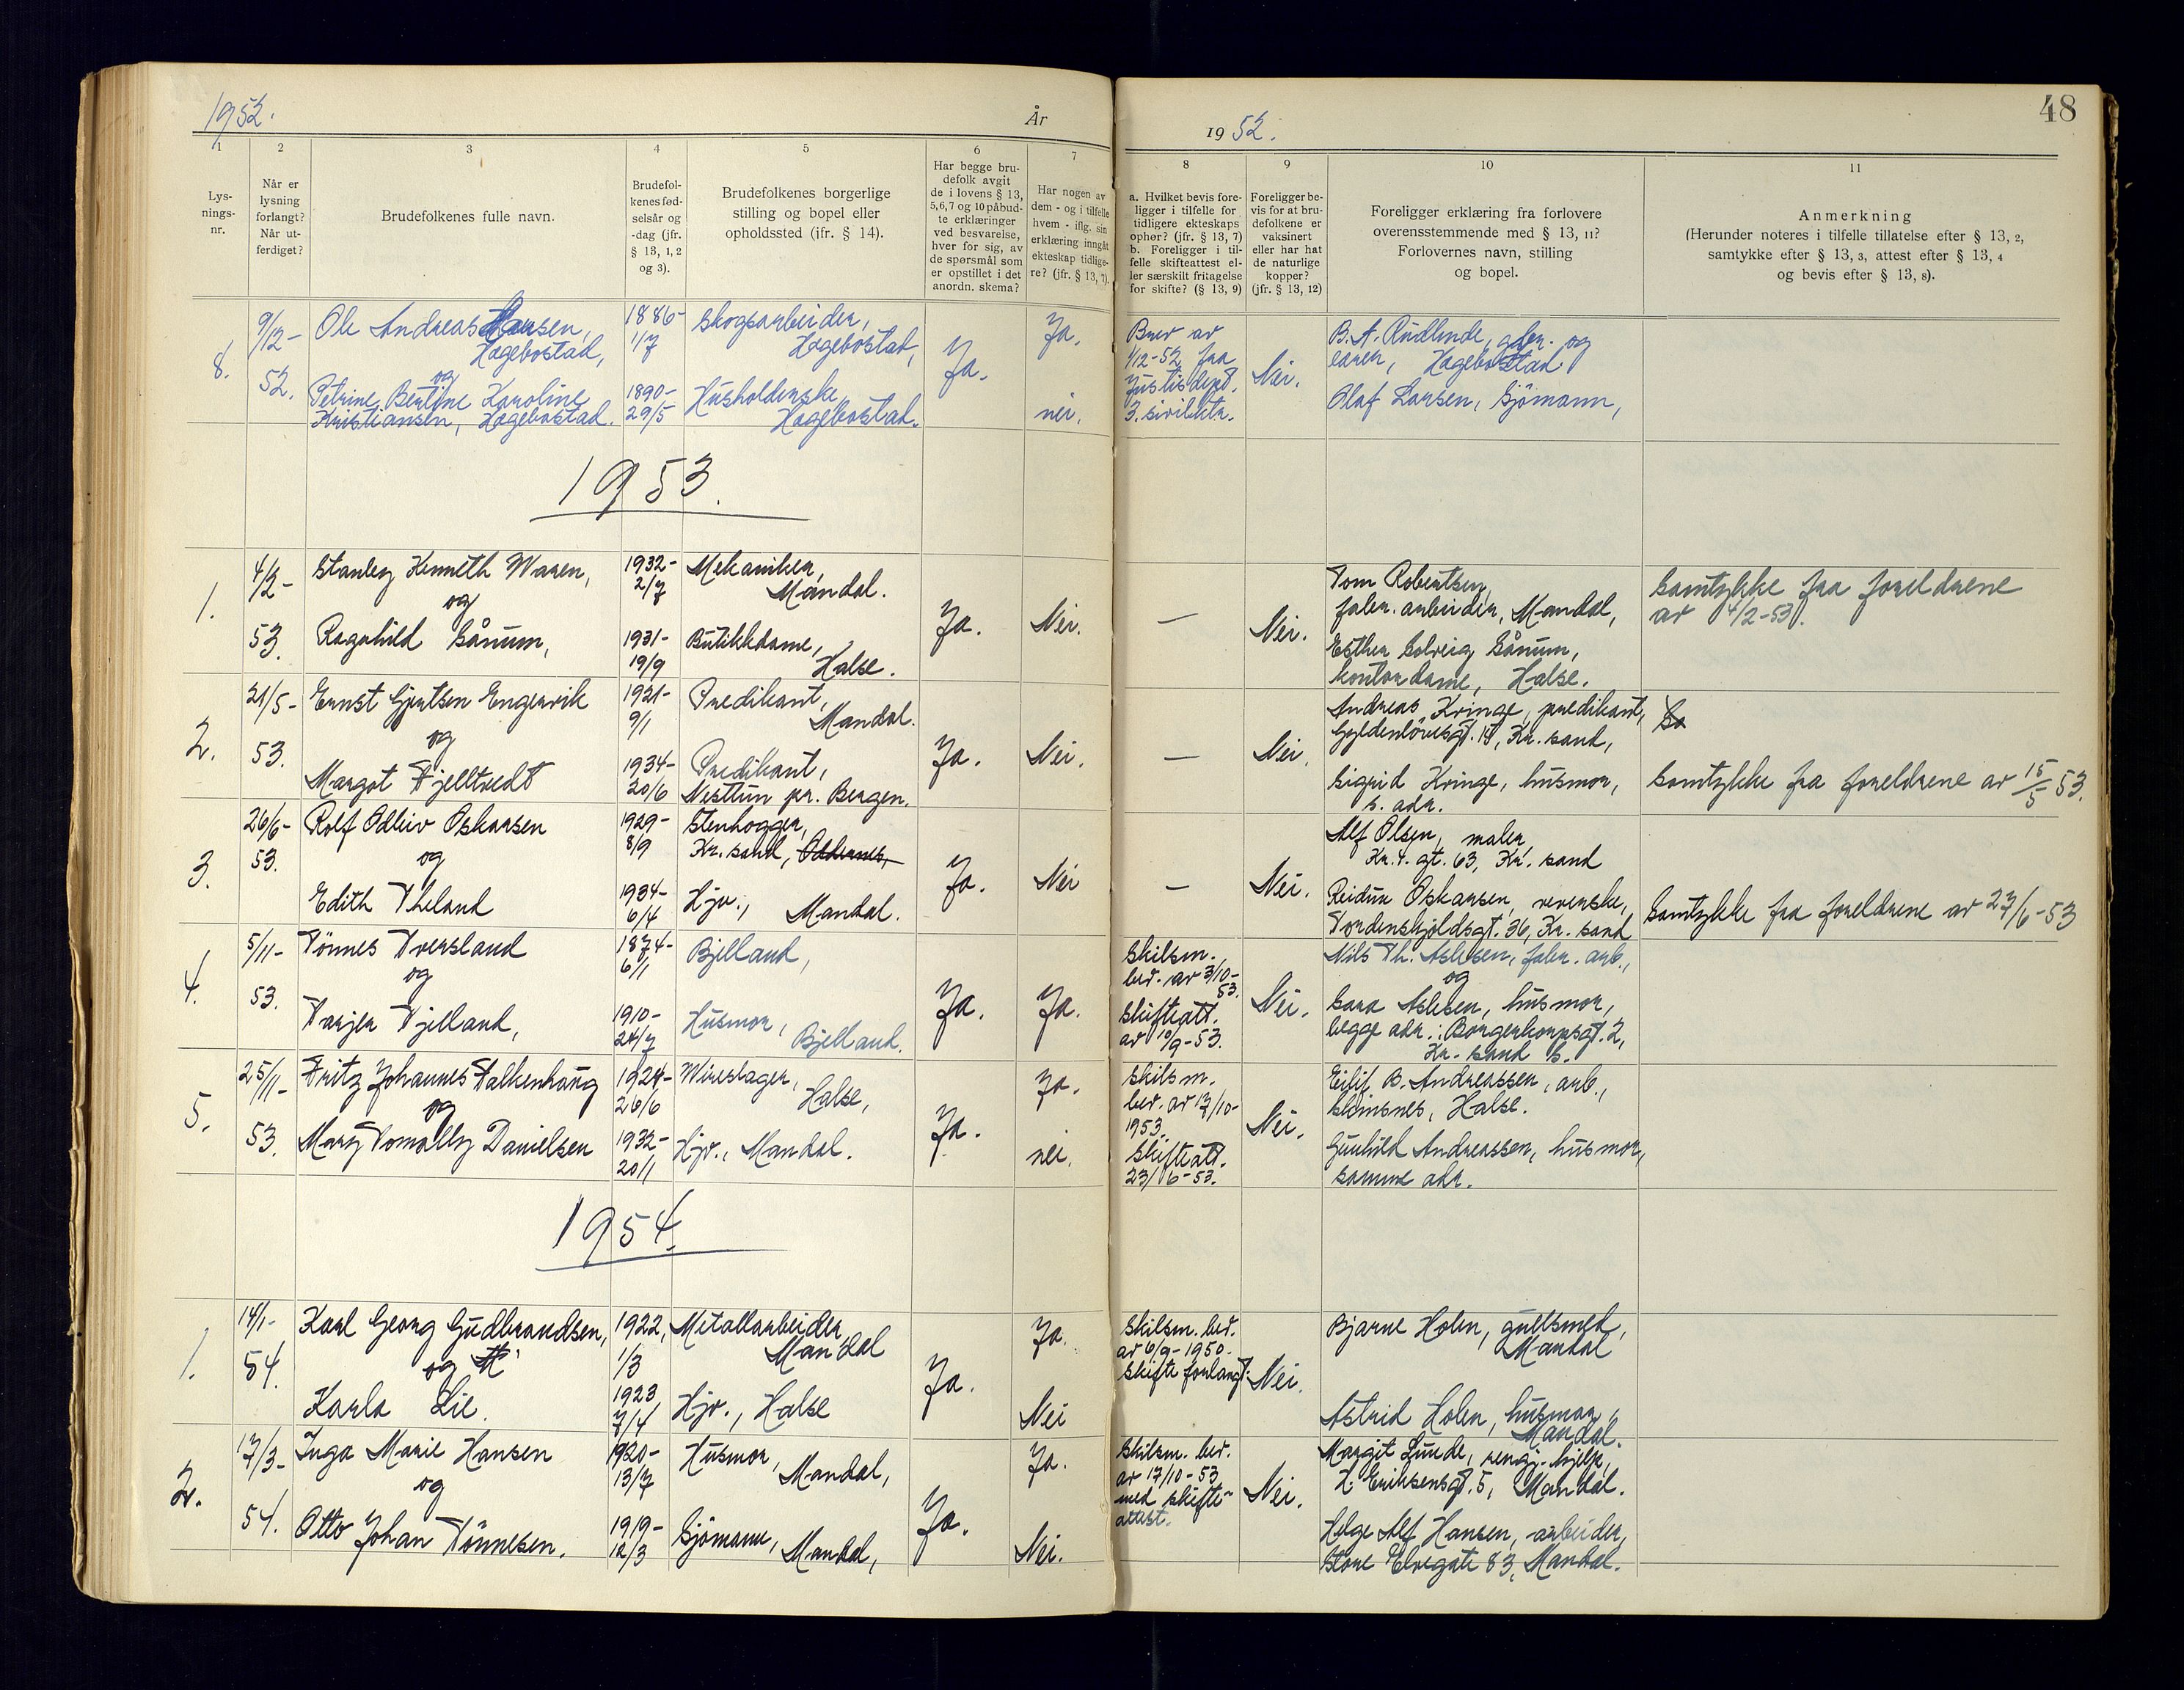 1952.
År
1952.
48
1
2
3
4
5
6
7
8
9
10
11
Lys-
nings-
nr.
Når er
lysning
forlangt?
Når ut-
ferdiget?
Brudefolkenes fulle navn.
Brudefol-
kenes fød-
selsår og
-dag (jfr.
§ 13, 1, 2
og 3).
Brudefolkenes borgerlige
stilling og bopel eller
opholdssted (jfr. § 14).
Har begge bru-
defolk avgit
de i lovens § 13,
5,6,7 og 10 påbud-
te erklæringer
ved besvarelse,
hver for sig, av
de spørsmål som
er opstillet i det
anordn. skema?
Har nogen av
dem - og i tilfelle
hvem - iflg. sin
erklæring inngått
ekteskap tidlige-
re? (jfr. § 13, 7).
a. Hvilket bevis fore-
ligger i tilfelle for
tidligere ekteskaps
ophør? (jfr. § 13, 7)
b. Foreligger i til-
felle skifteattest el-
ler særskilt fritagelse
for skifte? (§ 13, 9)
Foreligger be-
vis for at bru-
defolkene er
vaksinert
eller har hat
de naturlige
kopper?
(jfr. § 13, 12)
Foreligger erklæring fra forlovere
overensstemmende med § 13, 11?
Forlovernes navn, stilling
og bopel.
Anmerkning
(Herunder noteres i tilfelle tillatelse efter § 13, 2,
samtykke efter § 13, 3, attest efter § 13, 4
og bevis efter § 13, 8).
8.
9/12-
52.
Ole Andreas Hansen,
Hægebostad,
og
Petrine Bertine Karoline
Kristiansen, Hægebostad.
1886-
1/7
1890-
29/5
Skogsarbeider,
Hægebostad,
Husholderske
Hægebostad.
Ja.
Ja.
nei.
Brev av
1/12-52 fra
Justisdept.
3. sivilktr.
Nei.
og
Hægebostad
Olaf Larsen, Sjömann,
1953.
1.
4/2-
53.
Stanley Kenneth Waren,
og
Ragnhild Sånum,
1932-
2/7
1931-
19/9
Mekaniker,
Mandal.
Butikkdame,
Halse.
Ja.
Nei.
—
Nei.
Tom Robertsen,
fabr. arbeider, Mandal,
Esther Solveig Sånum,
kontordame, Halse.
Samtykke fra foreldrene
av 4/2-53.
2.
21/5-
53.
Ernst Gjertsen Engervik
og
Margot Fjelltvedt
1921-
9/1
1934-
20/6
Predikant,
Mandal.
Predikant,
Nesttun pr. Bergen.
Ja.
Nei.
—
Nei.
Andreas Kringe, predikant,
Gyldenlövesgt. 14, Kr. sand,
Sigrid Kringe, husmor,
s. adr.
Sa
Samtykke fra foreldrene av 15/5 53.
3.
26/6-
53.
Rolf Odleiv Oskarsen
og
Edith Theland
1929-
8/9
1934-
6/4
Stenhogger,
Kr. sand, Oddernes,
Hjv., Mandal.
Ja.
Nei
—
Nei.
Alf Olsen, maler
Kr. 4. gt. 63, Kr. sand
Reidun Oskarsen, veverske,
Tordenskjoldsgt. 36, Kr. sand
Samtykke fra foreldrene av 27/6-53
4.
5/11-
53.
Tönnes Tversland
og
Tarjer Tjelland,
1874-
6/1
1910-
24/7
Bjelland,
Husmor,
Bjelland.
Ja.
Ja.
Skilsm.
bev. av 3/10-
53.
Skifteatt.
av 10/9-53.
Nei.
Nils Th. Aslesen, fabr. arb.,
og
Sara Aslesen, husmor,
begge adr.: Borgerkorpsgt. 2,
Kr. sand S.
5.
25/11-
53.
Fritz Johannes Falkenhaug
og
Mary Tomally Danielsen
1924-
26/6
1932-
20/1
Wireslager,
Halse,
Hjv., Mandal.
Ja.
Ja.
nei.
Skilsm.
bev. av 17/10-
1953.
Skifteatt.
23/6-53.
Nei.
Eilif B. Andreassen, arb.,
Skinsnes, Halse.
Gunhild Andreassen, husmor,
samme adr.
1954.
1.
14/1-
54.
Karl Georg Gudbrandsen,
og
Karla Lie.
1922,
1/3
1923
7/4
Metallarbeider,
Mandal
Hjv., Halse
Ja.
Ja.
Nei
Skilsm. bev.
av 6/9-1950.
Skifte forlangt.
Nei.
Bjarne Holen, gullsmed,
Mandal
Astrid Holen, husmor,
Mandal.
2.
17/3-
54.
Inga Marie Hansen
og
Otto Johan Tönnesen.
1920-
13/7
1919-
12/3
Husmor,
Mandal,
Sjömann,
Mandal,
Ja.
Ja.
Nei.
Skilsm. bev.
av 17/10-53
med skifte-
attest.
Nei.
Margit Lunde, rengj. hjelp,
H. Eriksensgt. 5, Mandal.
Helge Alf Hansen, arbeider,
Store Elvegate 83, Mandal.